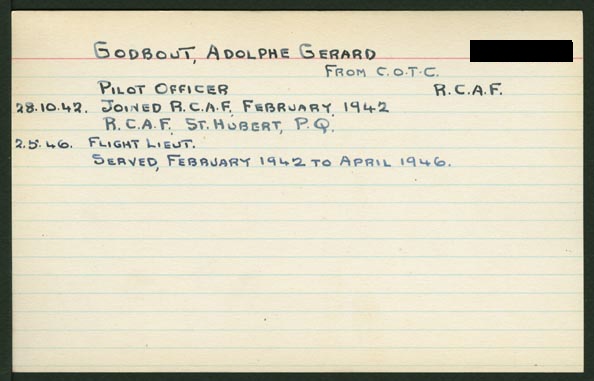 GODBOUT, ADOLPHE GERARD
FROM C.O.T.C.
PILOT OFFICER R.C.A.F.
28.10.42. JOINED R.C.A.F. FEBRUARY 1942
R.C.A.F. ST. HUBERT, P.Q.
2.5.46. FLIGHT LIEUT.
SERVED, FEBRUARY 1942 TO APRIL 1946.